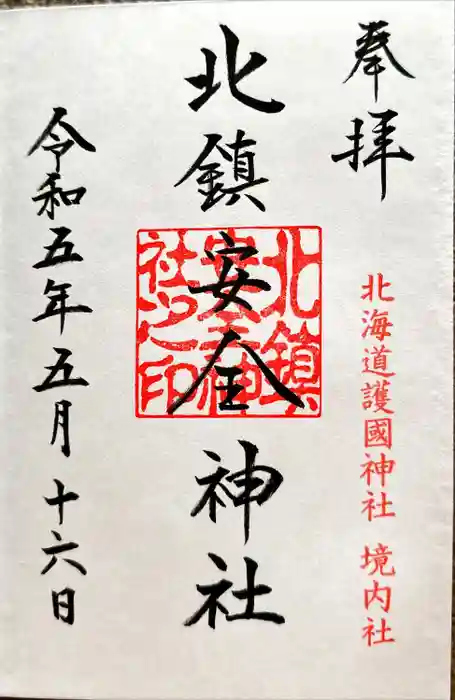 奉拝
北海道護國神社 境内社
北鎮安全神社
北鎮
安全神
社之印
令和五年五月十六日